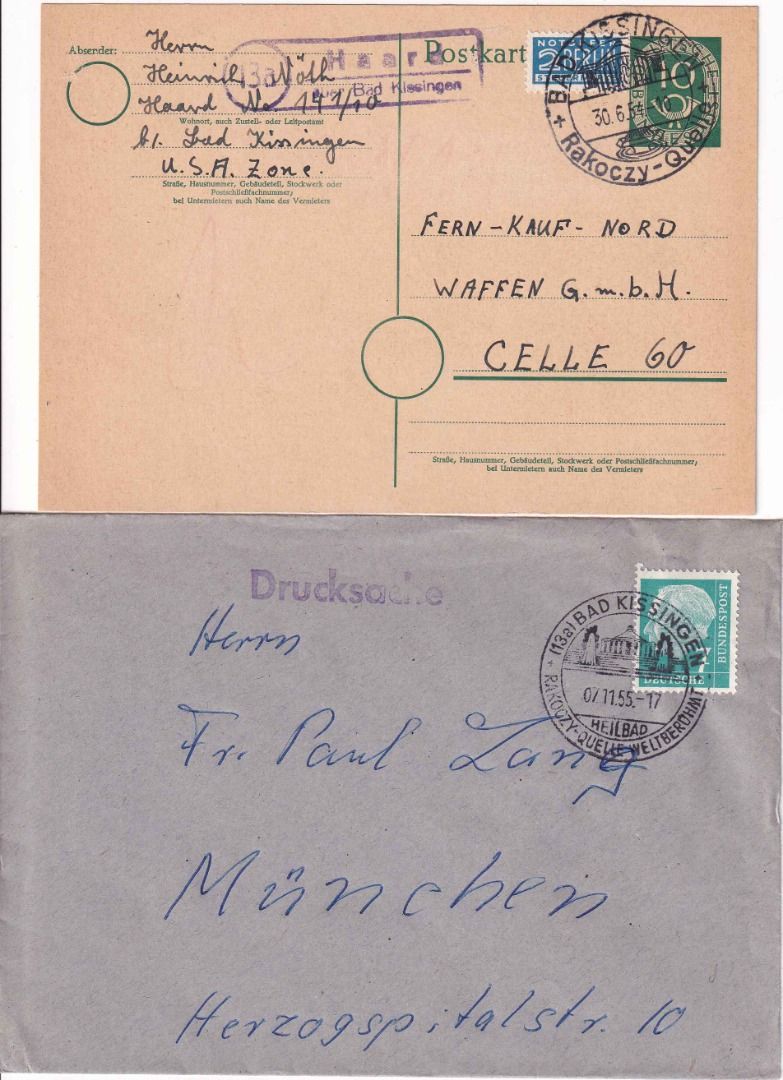 Absender:
Herrn
Heinrich Nöth
Haard No. 141/10
Wohnort, auch Zustell- oder Leitpostamt
b/. Bad Kissingen
U.S.A. Zone.
Straße, Hausnummer, Gebäudeteil, Stockwerk oder
Postschließfachnummer;
bei Untermietern auch Name des Vermieters
13a
Haard
über Bad Kissingen
Postkarte
NOTOPFER
2 BERLIN
STEUERMARKE
10
BAD KISSINGEN
30.6.
+ Rakoczy-Quelle +
FERN-KAUF-NORD
WAFFEN G.m.b.H.
CELLE 60
Straße, Hausnummer, Gebäudeteil, Stockwerk oder Postschließfachnummer;
bei Untermietern auch Name des Vermieters
Drucksache
(13a) BAD KISSINGEN
07.11.55.-17
HEILBAD
+ RAKOCZY-QUELLE WELTBERÜHMT +
DEUTSCHE
BUNDESPOST
Herrn
Fr. Paul Lang
München
Herzogspitalstr. 10